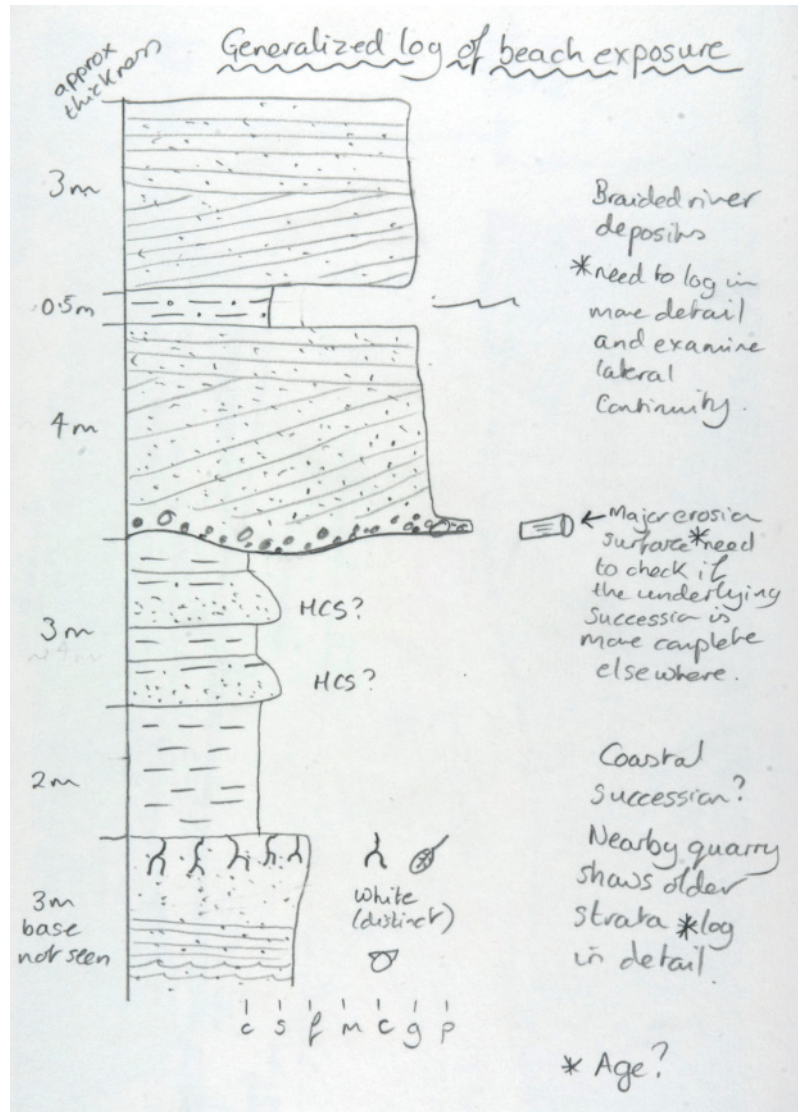 Generalized log of beach exposure
approx
thickness
3m
0.5m
4m
3m
2m
3m
base
not seen
HCS?
HCS?
White
(distinct)
c s f m c g p
Braided river
deposits
*need to log in
more detail
and examine
lateral
continuity.
← Major erosion
surface *need
to check if
the underlying
succession is
more complete
elsewhere.
Coastal
succession?
Nearby quarry
shows older
strata *log
in detail
* Age?